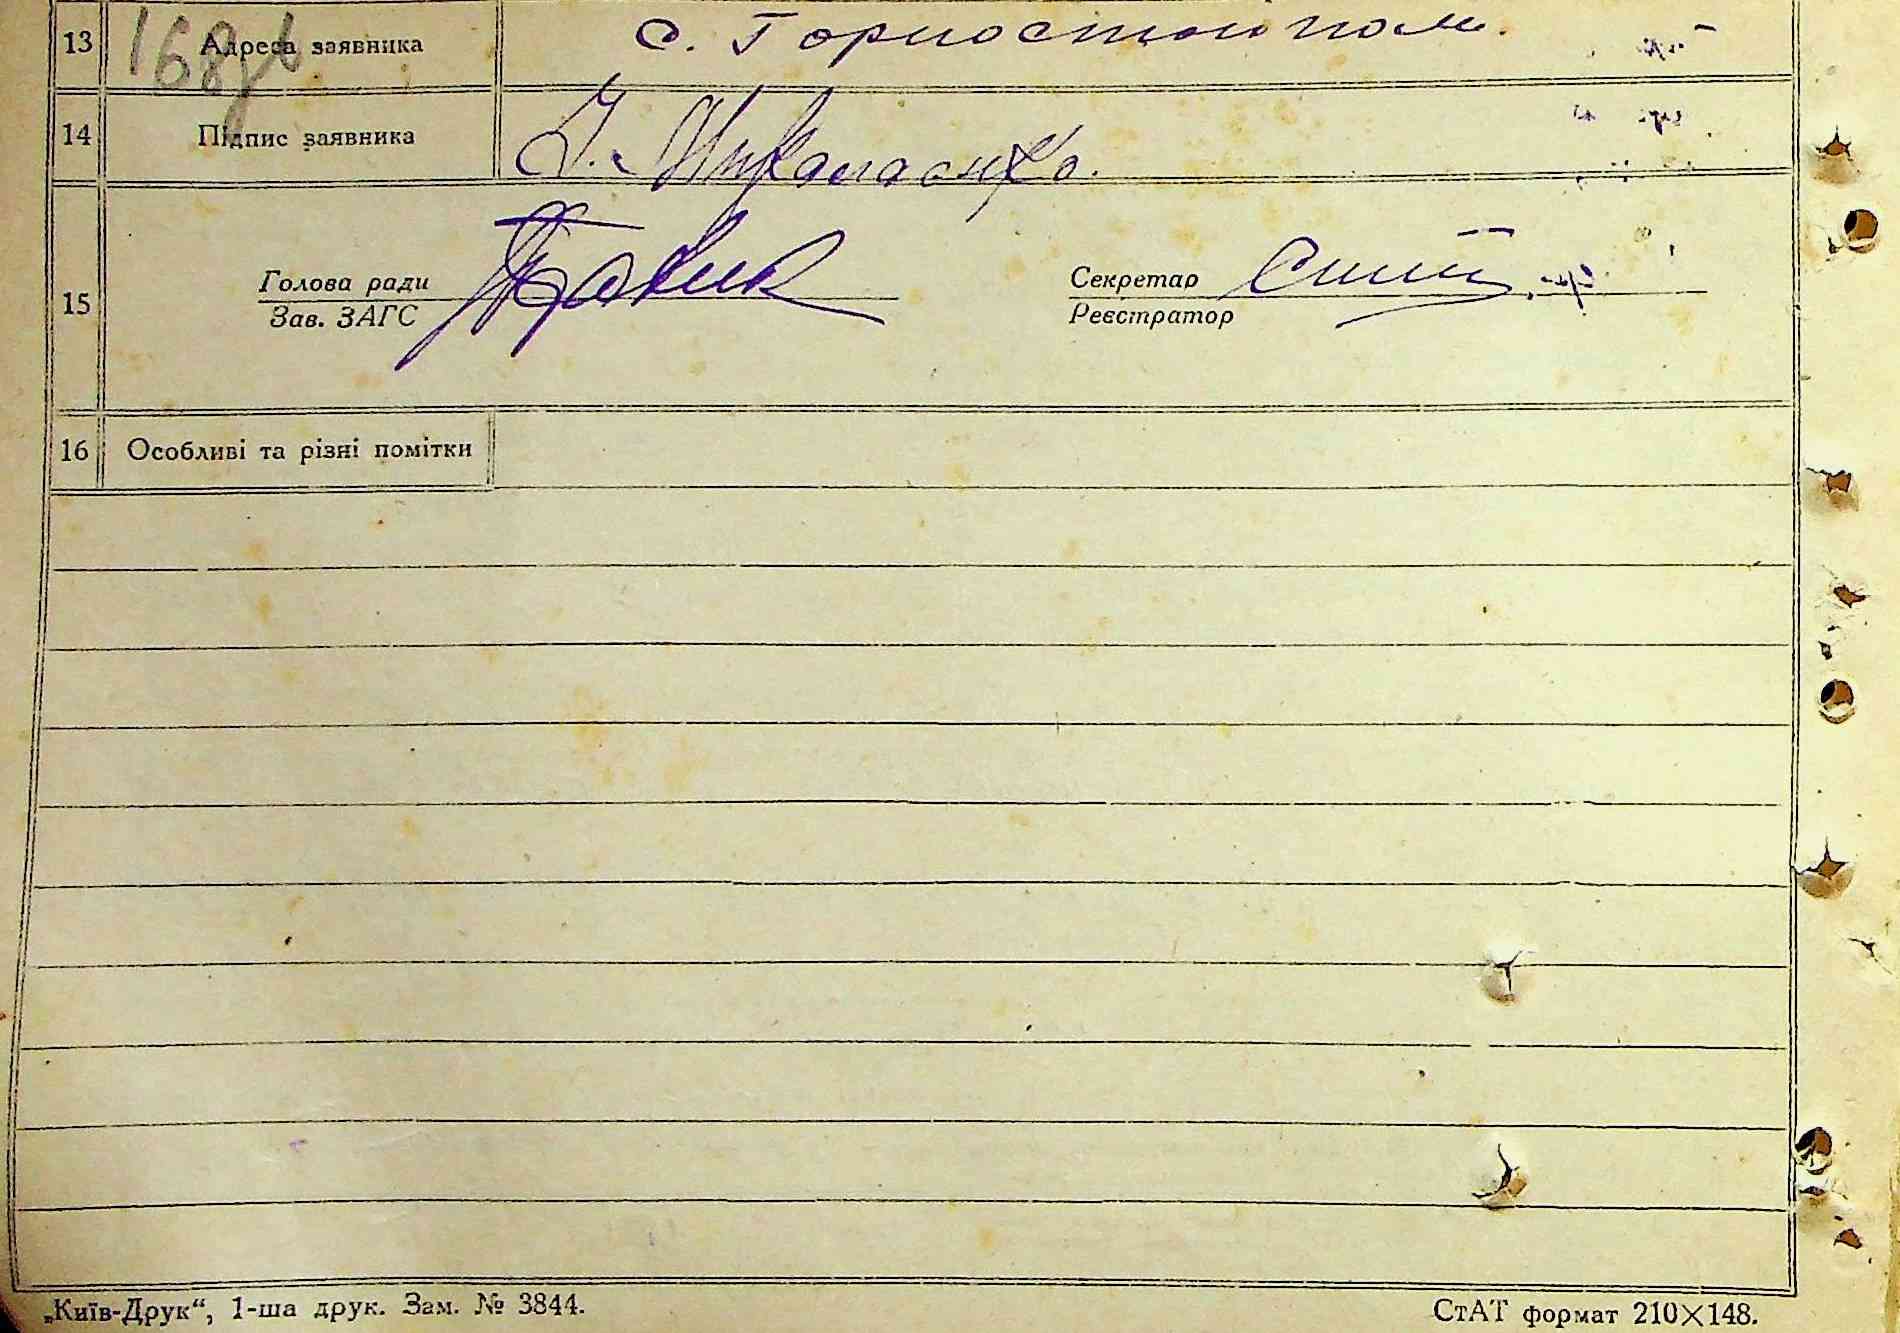 13 Адреса заявника с. Горностайполь.
168зв
14 Підпис заявника Миколаенко.
15 Голова ради Секретар
Зав. ЗАГС Реєстратор
16 Особливі та різні помітки
„Київ-Друк“, 1-ша друк. Зам. № 3844. СтАТ формат 210×148.